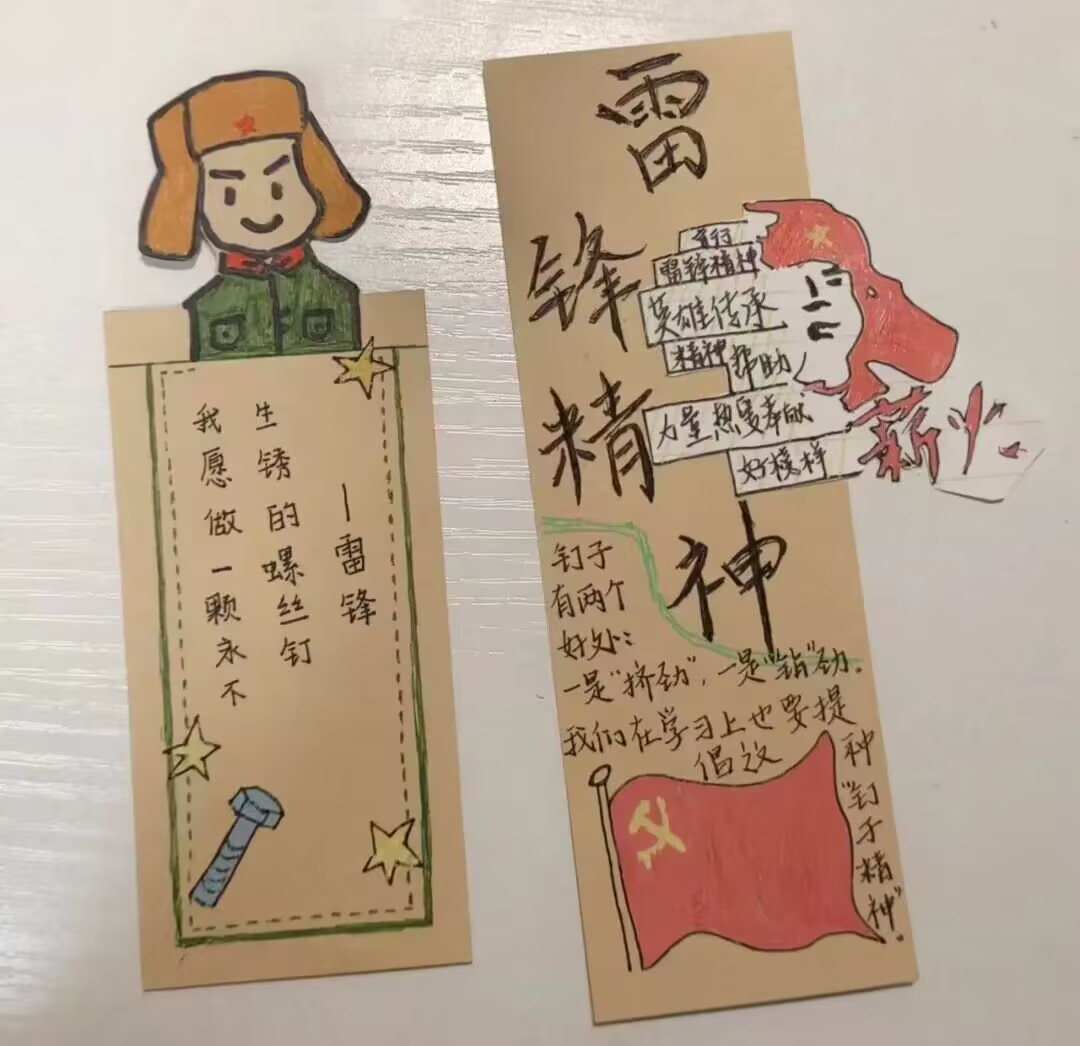 我愿做一颗永不
生锈的螺丝钉
—雷锋
雷锋精神
雷锋精神
英雄传承
精神帮助
力量热爱奉献
好榜样
薪火
钉子
有两个
好处：
一是“挤劲”，一是“钻”劲。
我们在学习上也要提
倡议
种
“钉子精神”。